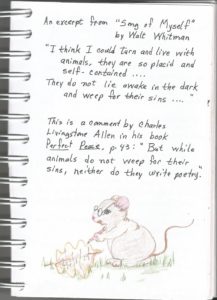 An excerpt from "Song of Myself"
by Walt Whitman
"I think I could turn and live with
animals, they are so placid and
self-contained ....
They do not lie awake in the dark
and weep for their sins ...."
This is a comment by Charles
Livingstone Allen in his book
Perfect Peace, p. 43: "But while
animals do not weep for their
sins, neither do they write poetry."